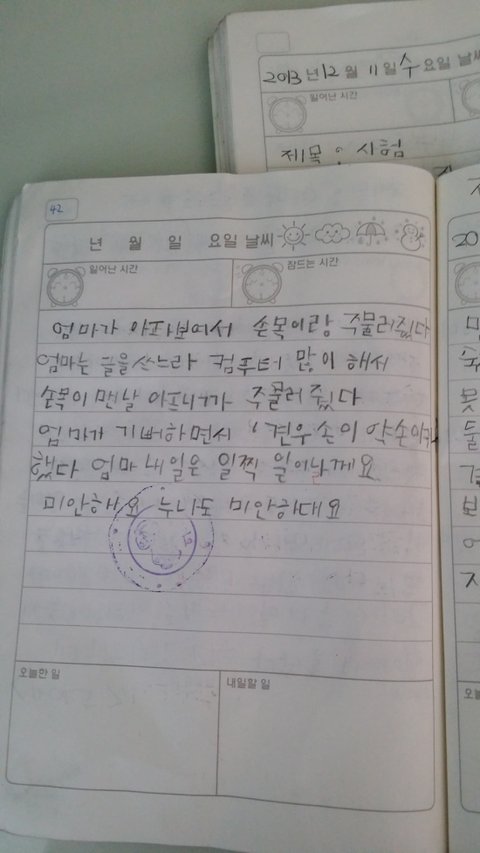 2013년 12월 11일 수요일 날씨
일어난 시간
제목 : 시험
42
년 월 일 요일 날씨
일어난 시간
잠드는 시간
엄마가 아파보여서 손목이랑 주물러줬다
엄마는 글을쓰느라 컴푸터 많이 해서
손목이 맨날 아프니까 주물러 줬다
엄마가 기뻐하면서 '견우 손이 약손이
했다 엄마 내일은 일찍 일어날게요
미안해요 누나도 미안하대요
오늘한 일
내일할 일
20